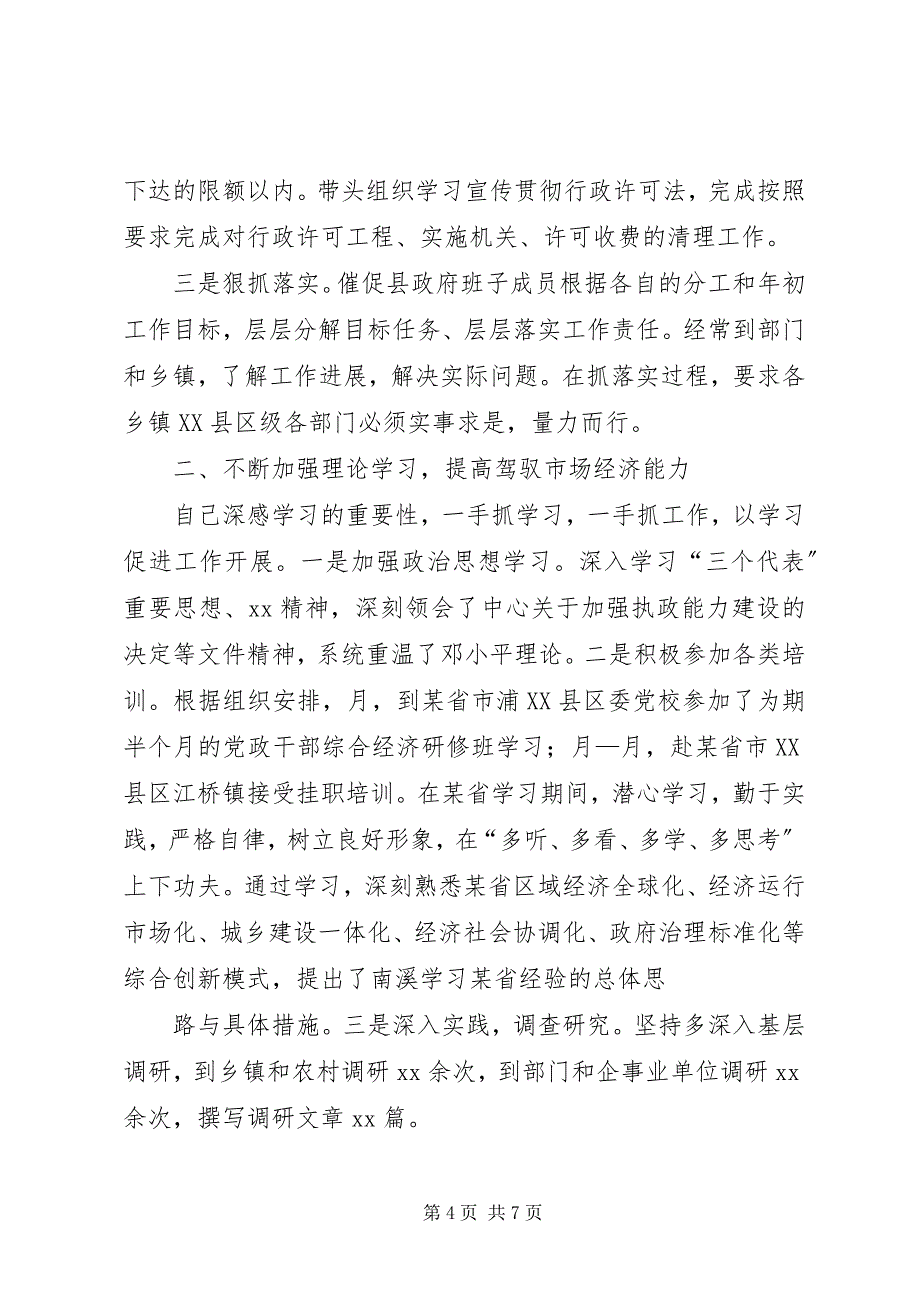 下达的限额以内。带头组织学习宣传贯彻行政许可法，完成按照
要求完成对行政许可工程、实施机关、许可收费的清理工作。
三是狠抓落实。催促县政府班子成员根据各自的分工和年初
工作目标，层层分解目标任务、层层落实工作责任。经常到部门
和乡镇，了解工作进展，解决实际问题。在抓落实过程，要求各
乡镇 XX 县区级各部门必须实事求是，量力而行。
二、不断加强理论学习，提高驾驭市场经济能力
自己深感学习的重要性，一手抓学习，一手抓工作，以学习
促进工作开展。一是加强政治思想学习。深入学习“三个代表″
重要思想、xx 精神，深刻领会了中心关于加强执政能力建设的
决定等文件精神，系统重温了邓小平理论。二是积极参加各类培
训。根据组织安排，月，到某省市浦 XX 县区委党校参加了为期
半个月的党政干部综合经济研修班学习；月—月，赴某省市 XX
县区江桥镇接受挂职培训。在某省学习期间，潜心学习，勤于实
践，严格自律，树立良好形象，在“多听、多看、多学、多思考″
上下功夫。通过学习，深刻熟悉某省区域经济全球化、经济运行
市场化、城乡建设一体化、经济社会协调化、政府治理标准化等
综合创新模式，提出了南溪学习某省经验的总体思
路与具体措施。三是深入实践，调查研究。坚持多深入基层
调研，到乡镇和农村调研 xx 余次，到部门和企事业单位调研 xx
余次，撰写调研文章 xx 篇。
第 4 页 共 7 页